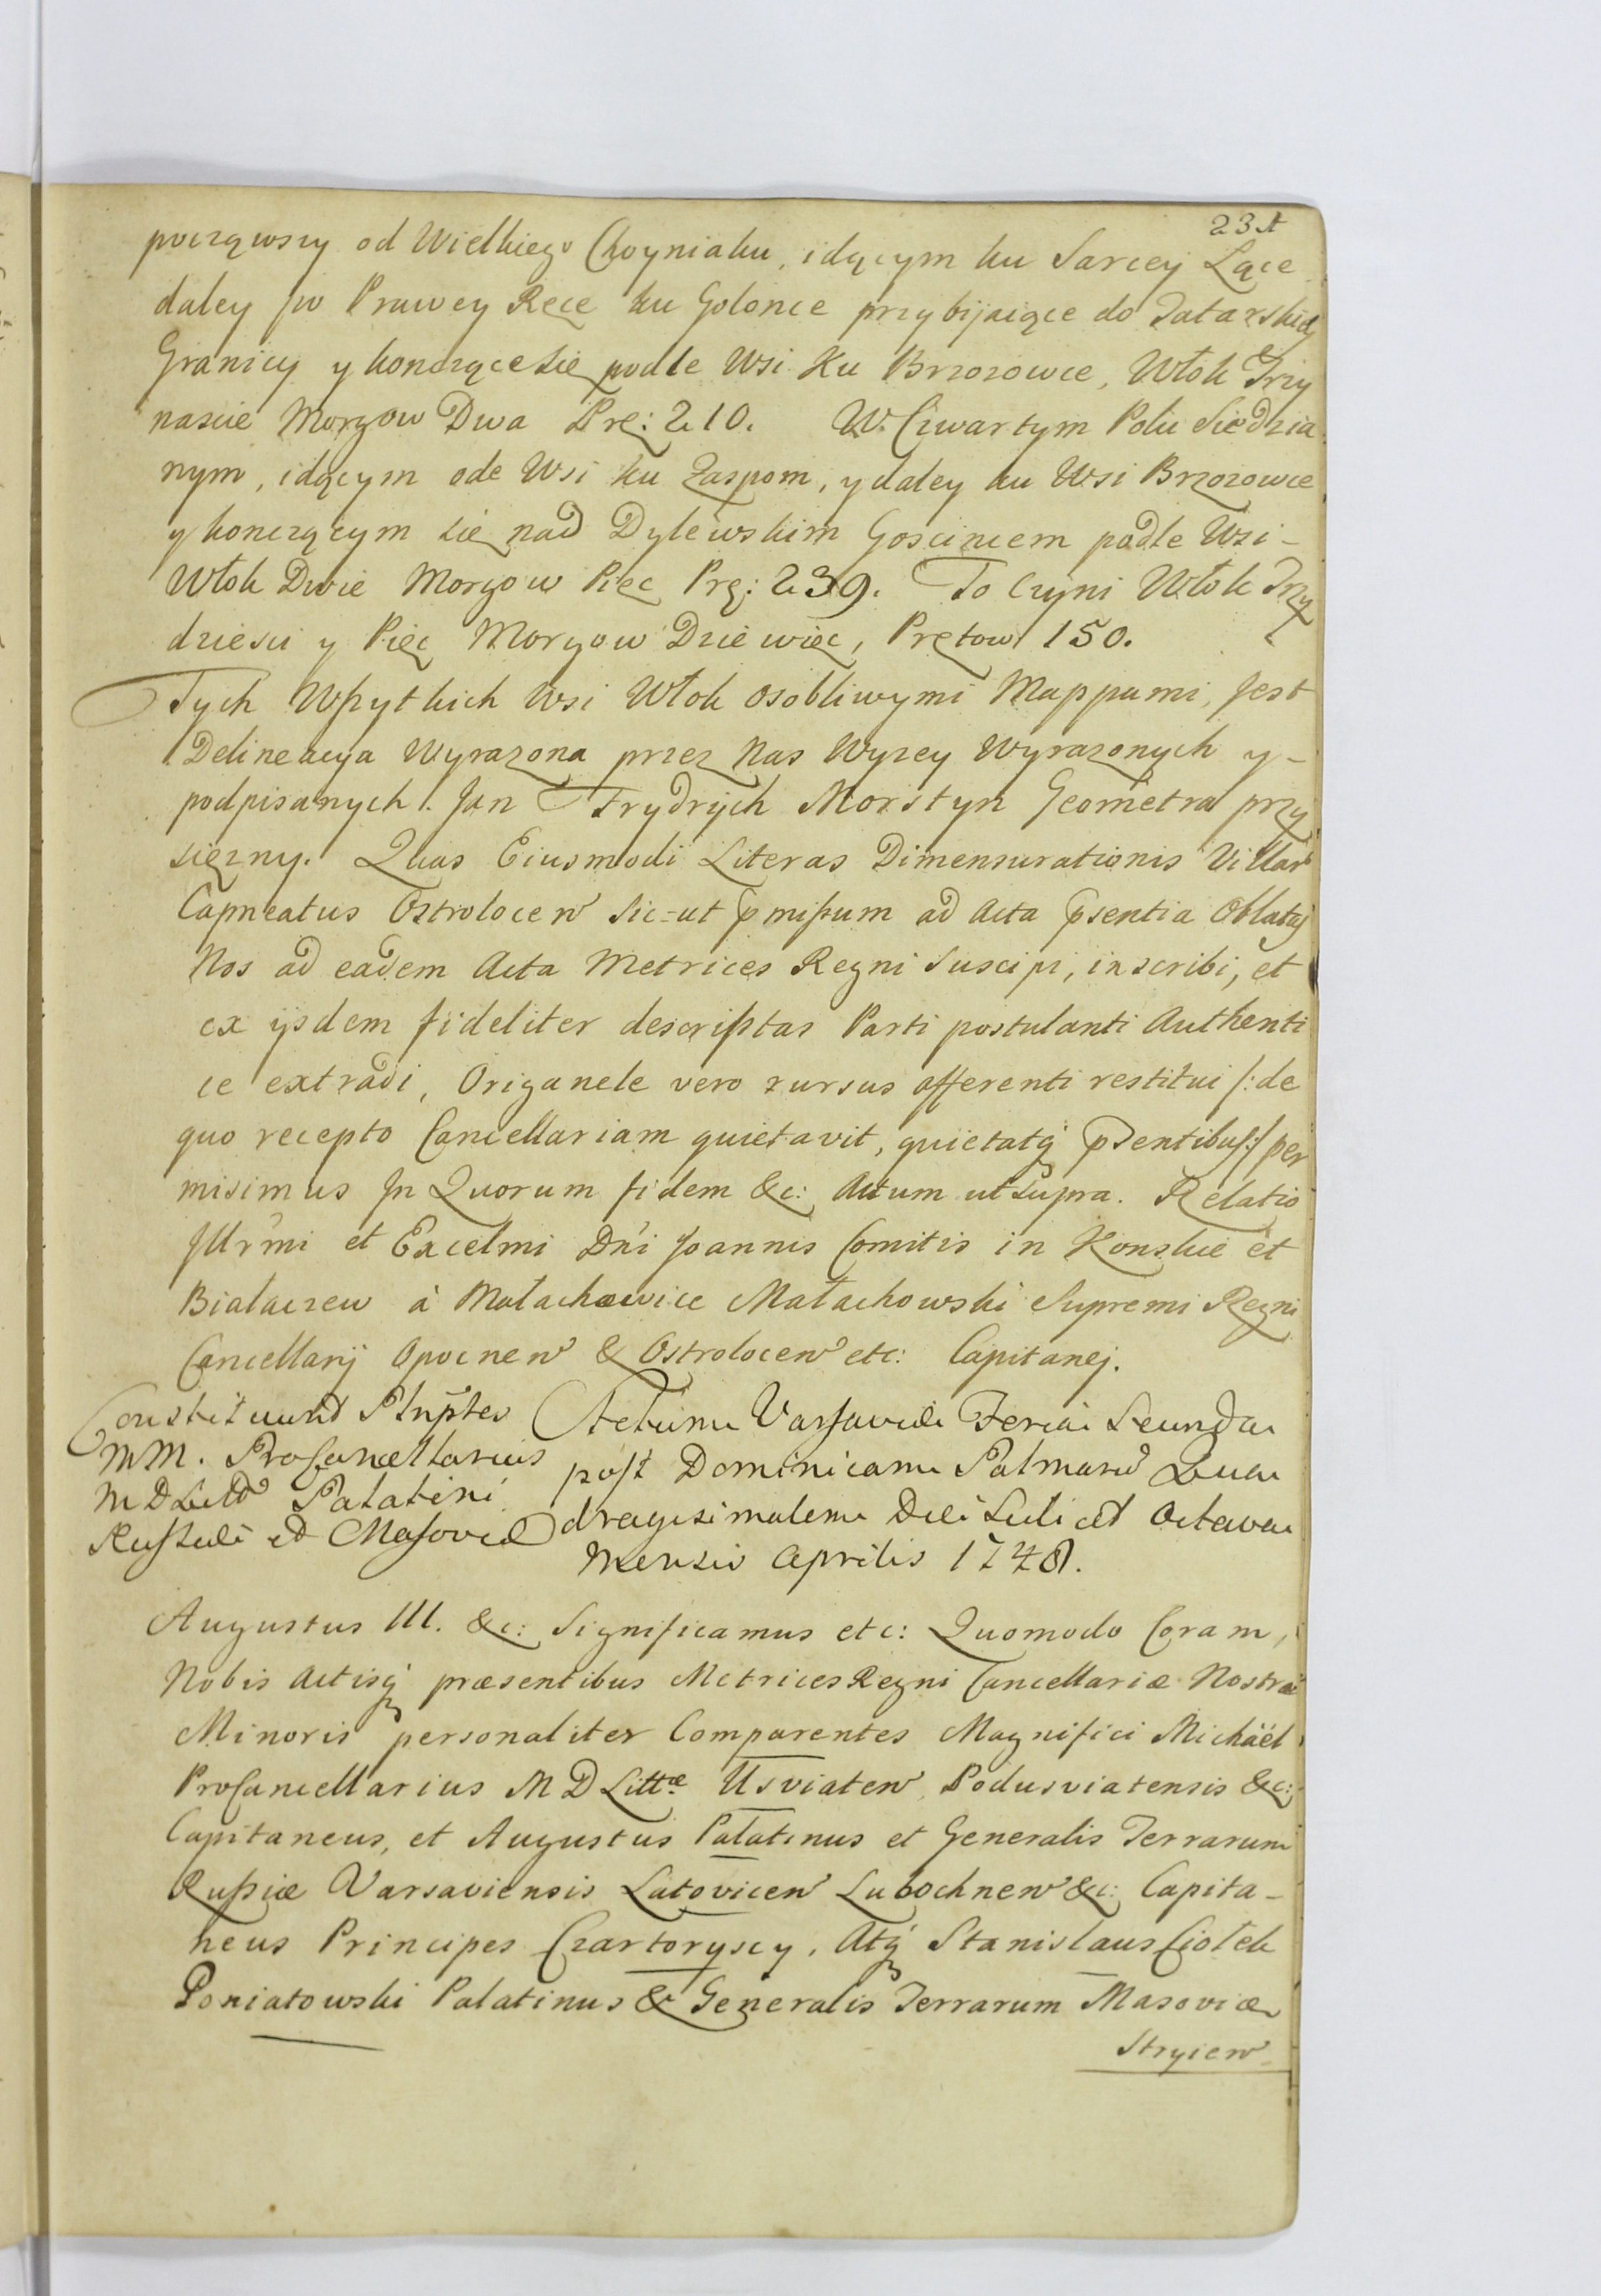 począwszy od Wielkiego Choyniaku, idącym ku Sarcey Łące
daley po Prawey Ręce ku Golonce przybijaiące do Tatarskiey
Granicy y konczące się podle Wsi Ku Brzozowce, Włok Trzy
nascie Morgow Dwa Prę: 210. W Czwartym Polu Siedzia
nym, idącym ode Wsi ku Zaspom, y daley ku Wsi Brzozowce
y konczącym się nad Dylewskim Goscincem podle Wsi –
Włok Dwie Morgow Pięc Prę: 239. To Czyni Włok Trzy
dziesci y Pięc Morgow Dziewięc, Prętow 150.
Tych Wszytkich Wsi Włok osobliwymi Mappami, Jest
Delineacya Wyrazona przez Nas Wyzey Wyrazonych y –
podpisanych. Jan Frydrych Morstyn Geometra przy
sięzny. Quas Eiusmodi Literas Dimensurationis Villar
Capneatus Ostrolocen Sic=ut pmissum ad Acta psentia Oblatas
Nos ad eadem Acta Metrices Regni Suscipi, inscribi, et
ex ijsdem fideliter descriptas Parti postulanti Authenti
ce extradi, Origanele vero rursus offerenti restitui /: de
quo recepto Cancellariam quietavit, quietatq psentibus :/ per
misimus In Quorum fidem &c: Actum ut supra. Relatio
Illrmi et Excelmi Dni Joannis Comitis in Konskie et
Białaczew à Małachowice Małachowski Supremi Regni
Cancellarij Opocnen & Ostrolocen etc: Capitanej.
Constituunt Plnptes
MM. ProCancellarius
M D Litt Palatini
Russiæ et Masoviæ
Actum Varsaviæ Feria Secunda
post Dominicam Palmarum Qua
dragesimalem Die Scilicet Octava
Mensis Aprilis 1748.
Augustus III. &c: Significamus etc: Quomodo Coram,
Nobis Actisq præsentibus Metrices Regni Cancellariæ Nostræ
Minoris personaliter Comparentes Magnifici Michäel
ProCancellarius M D Littæ Usviaten Podusviatensis &c:
Capitaneus, et Augustus Palatinus et Generalis Terrarum
Russiæ Varsaviensis Latovicen Lubochnen &c: Capita –
neus Principes Czartoryscy, Atq Stanislaus Ciołek
Poniatowski Palatinus & Generalis Terrarum Masoviæ
Stryien